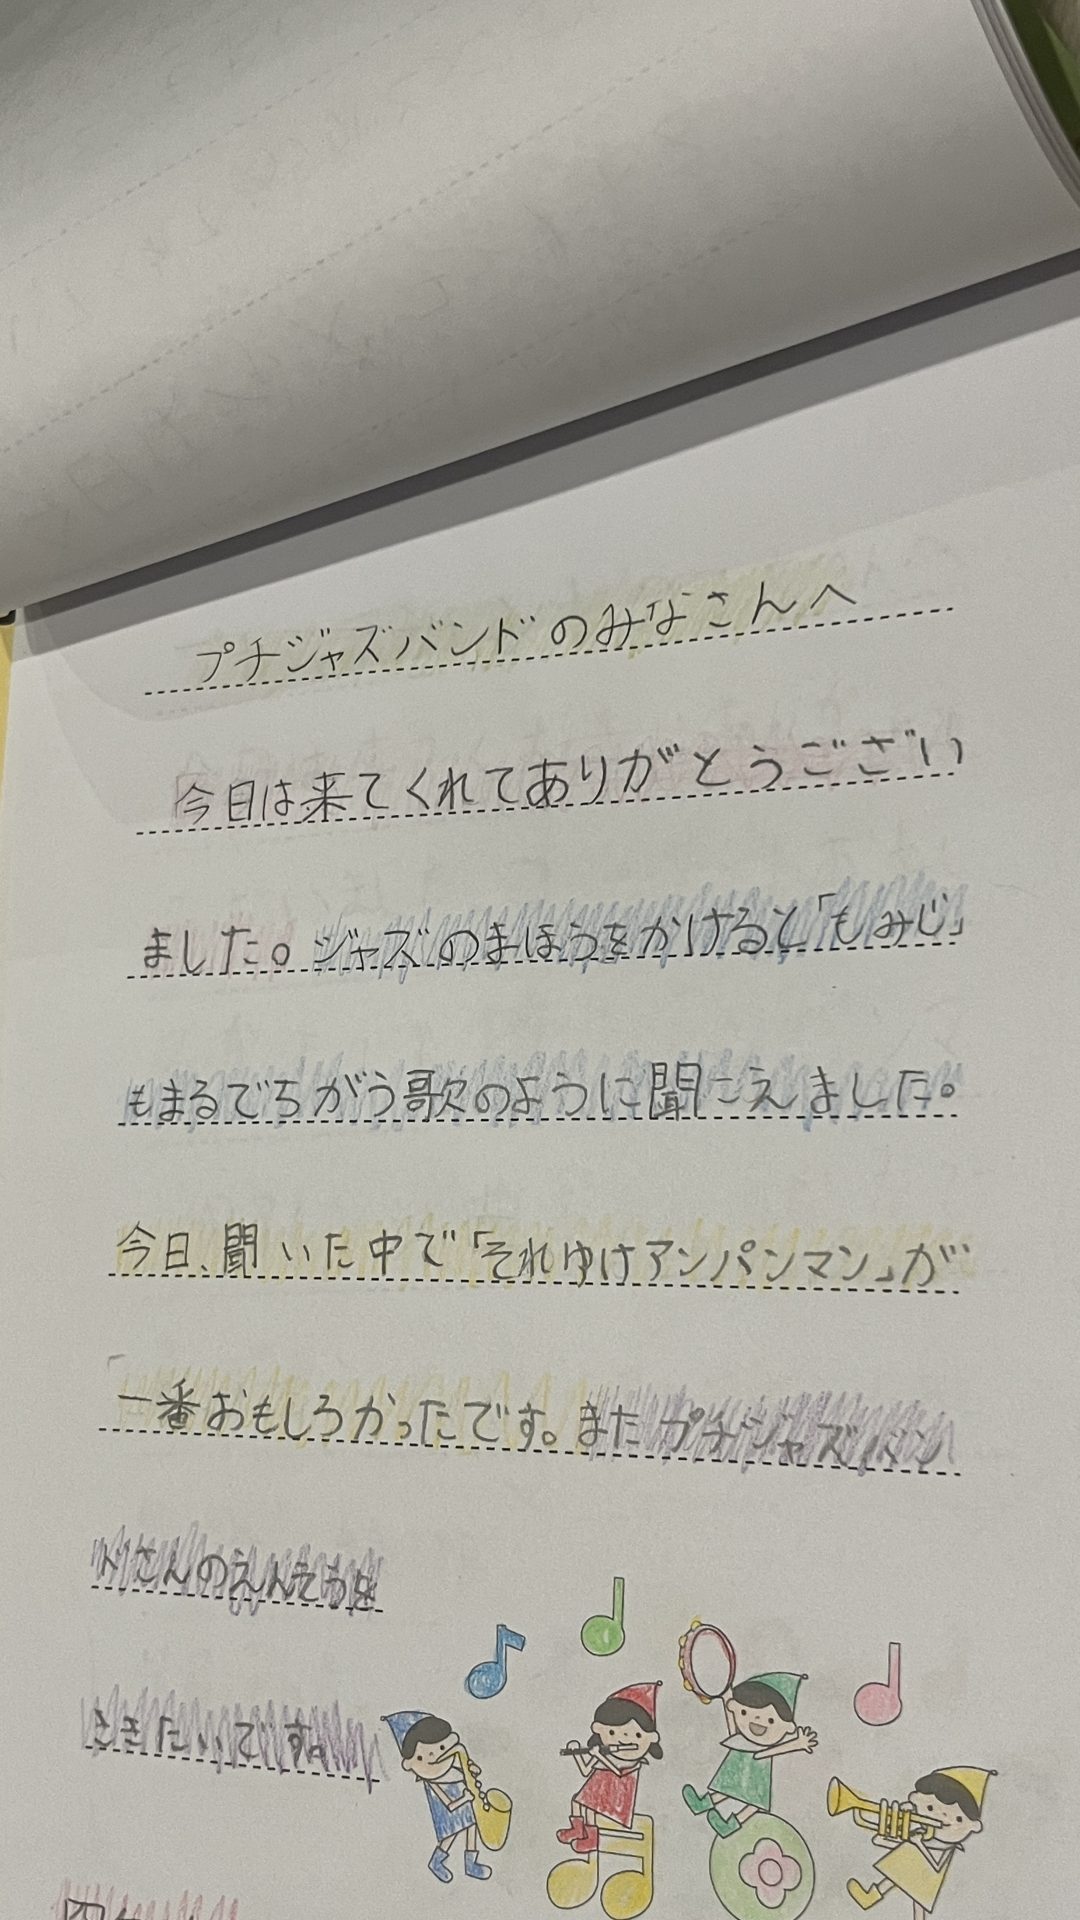 プチジャズバンドのみなさんへ
今日は来てくれてありがとうござい
ました。ジャズのまほうをかけると「もみじ」
もまるでちがう歌のように聞こえました。
今日、聞いた中で「それゆけアンパンマン」が
一番おもしろかったです。またプチジャズバン
ドさんのえんそうを
ききたいです。